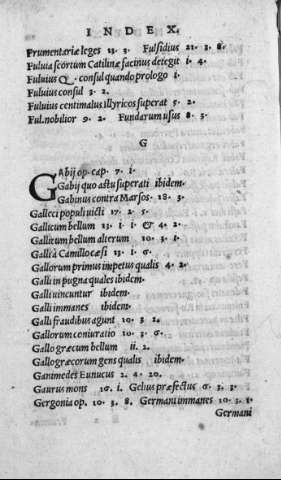 INDEX.
Frumentariæ leges 13. 3. Fulsidius 21. 3. 8.
Fuluia scortum Catilinæ facinus detegit 1. 4.
Fuluius Q. consul quando prologo 1.
Fuluius consul 3. 2.
Fuluius centimalus illyricos superat 5. 2.
Ful. nobilior 9. 2. Fundarum usus 8. 3.
G
GAbij op. cap. 7. 1.
Gabij quo astu superati ibidem.
Gabinus contra Marsos. 18. 3.
Galleci populi uicti 17. 2. 5.
Gallicum bellum 13. 1. 1. & 4. 2.
Gallicum bellum alterum 10. 3. 1.
Galli à Camillo cæsi 13. 1. 6.
Gallorum primus impetus qualis 4. 2.
Galli in pugna quales ibidem.
Galli uincuntur ibidem.
Galli immanes ibidem.
Galli fraudibus agunt 10. 3. 2.
Gallorum coniuratio 10. 3. 6.
Gallogræcum bellum ii. 2.
Gallogræcorum gens qualis ibidem.
Ganimedes Eunucus 2. 4. 20.
Gaurus mons 16. i. Gelius præfectus 6. 3. 3.
Gergonia op. 10. 3. 8. Germani immanes 10. 3. 1.
Germani